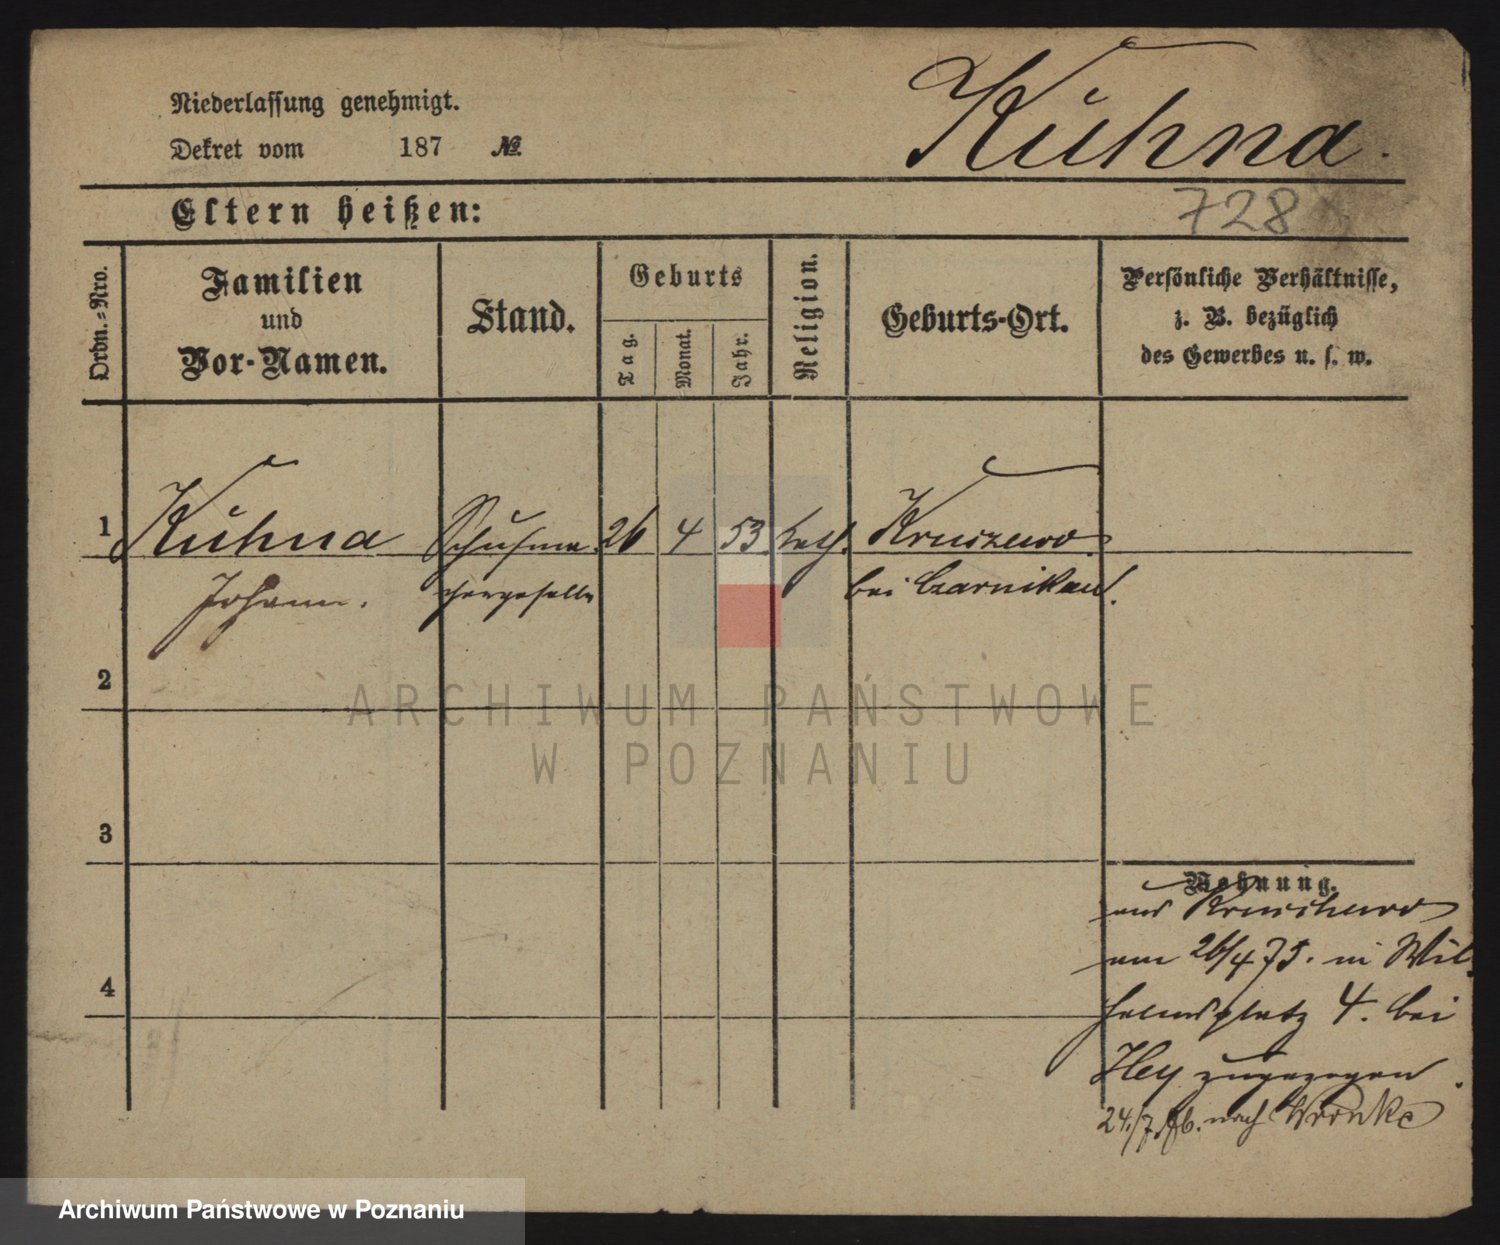 Niederlassung genehmigt.
Dekret vom 187 №
Kuhna.
728
Eltern heißen:
Ordn.-Nro.
Familien und Vor-Namen.
Stand.
Geburts
Tag.
Monat.
Jahr.
Religion.
Geburts-Ort.
Persönliche Verhältnisse,
z. B. bezüglich
des Gewerbes u. s. w.
1 Kuhna Schuhma 26 4 53 kath. Kruszewo
Johann. chergeselle bei Czarnikau.
2
3
4
Wohnung.
aus Kruschewo
am 26/4 75. in Wil
helmsplatz 4. bei
Hey zugezogen.
24./7. nach Wronke
ARCHIWUM PAŃSTWOWE
W POZNANIU
Archiwum Państwowe w Poznaniu